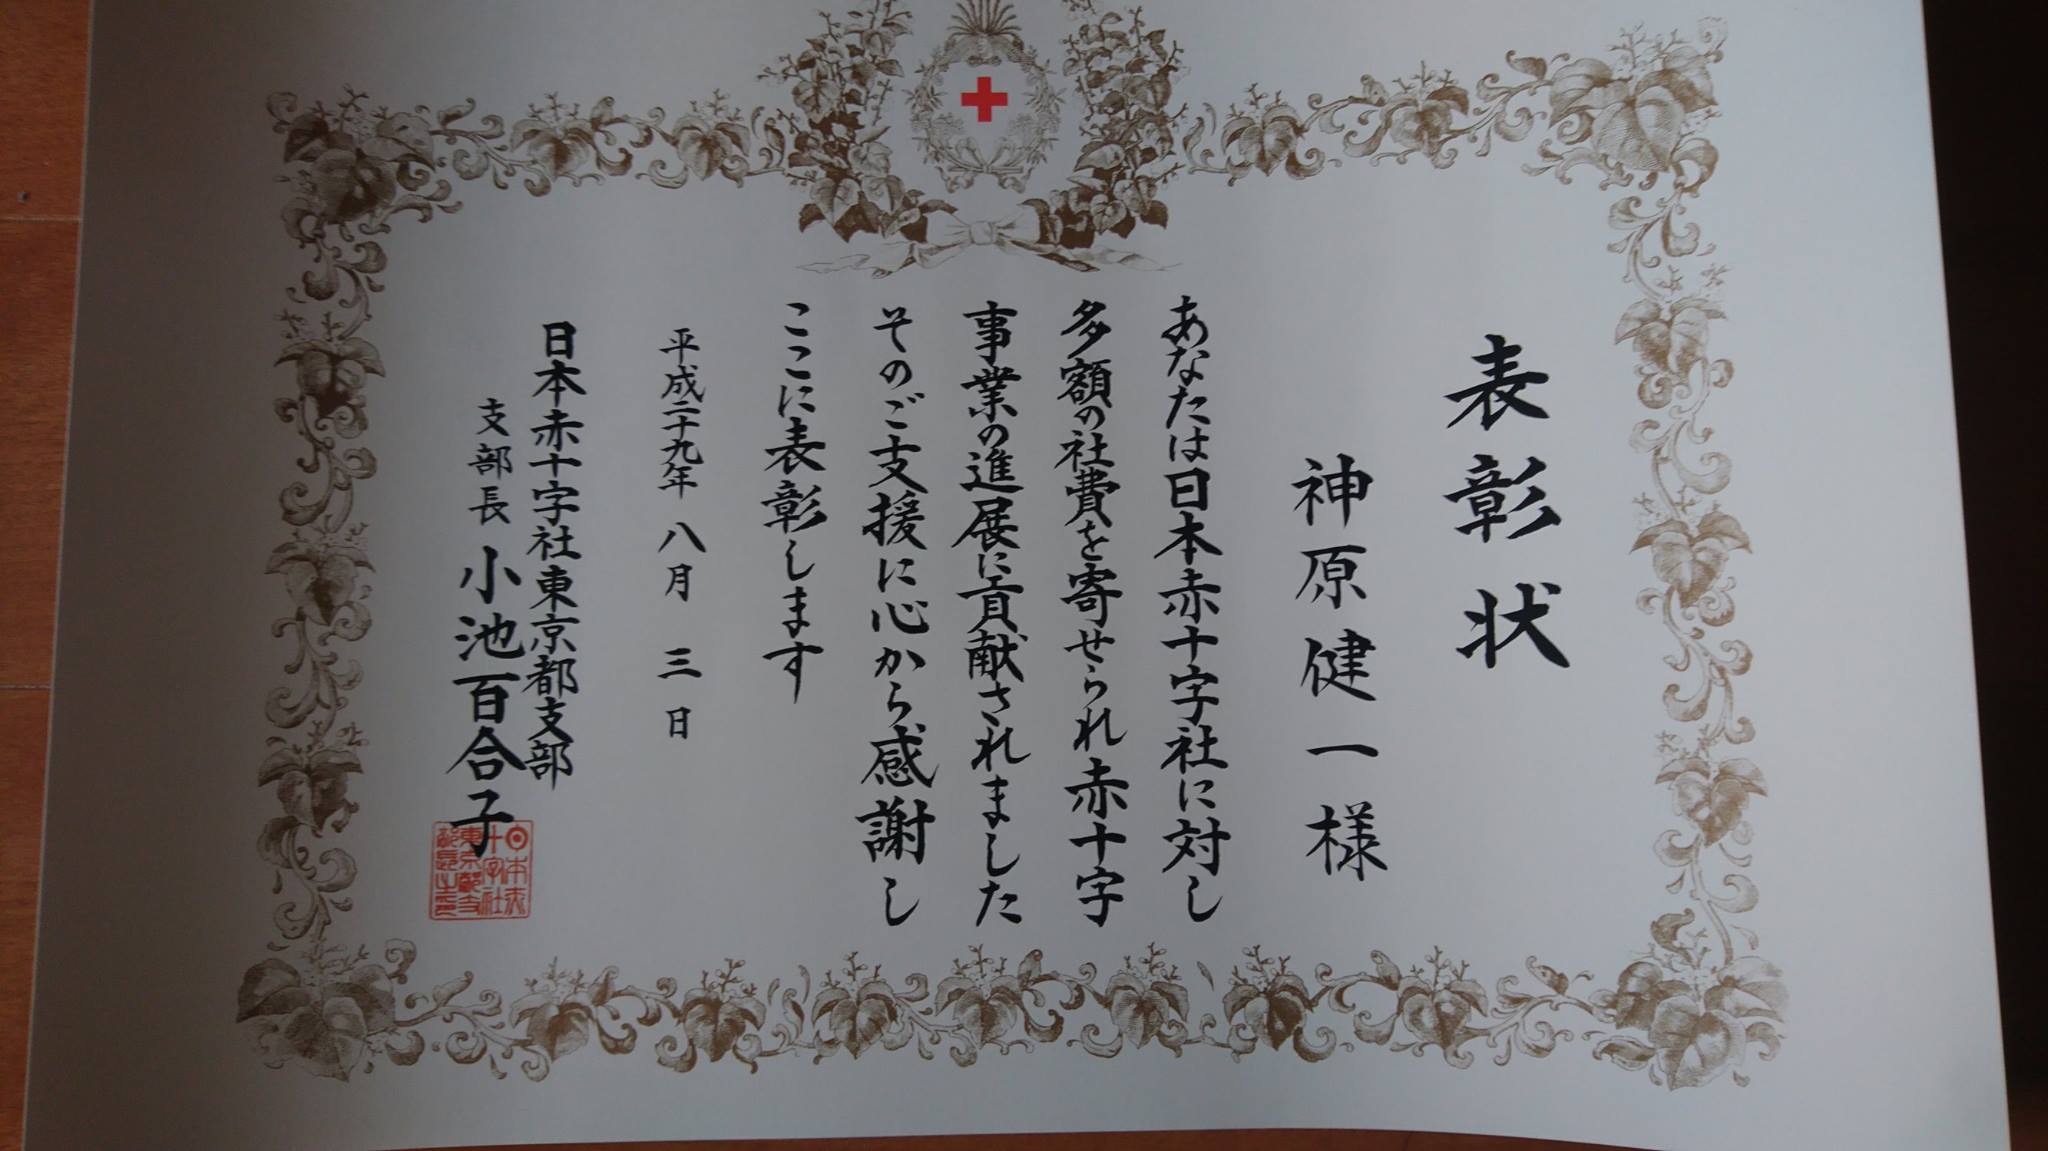 表彰状
神原健一様
あなたは日本赤十字社に対し
多額の社費を寄せられ赤十字
事業の進展に貢献されました
そのご支援に心から感謝し
ここに表彰します
平成二十九年八月三日
日本赤十字社東京都支部
支部長 小池百合子
日本赤
十字社
東京都支
部長之印